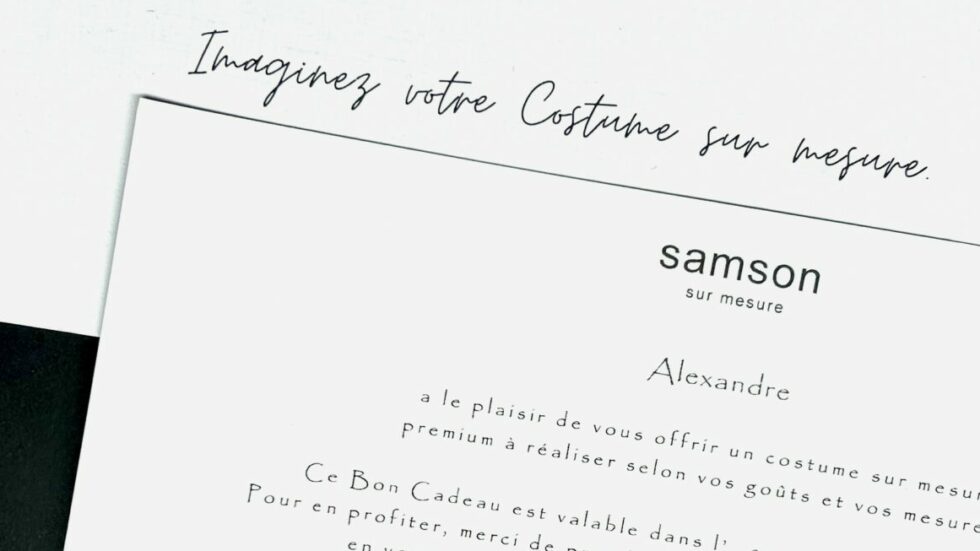 Imaginez votre Costume sur mesure.
samson
sur mesure
Alexandre
a le plaisir de vous offrir un costume sur
premium à réaliser selon vos goûts et vos
Ce Bon Cadeau est valable dans
Pour en profiter, merci de
en